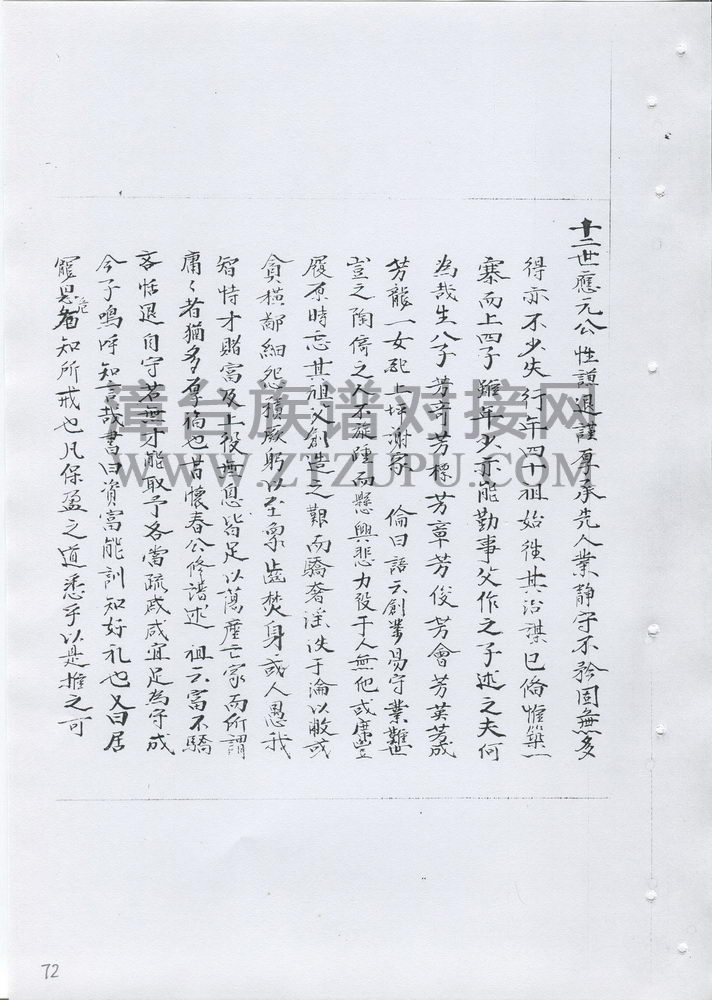 十二世應元公性謹退謹厚承先人業靜守不矜固無多
得亦不少失行年四十祖始徙其治謀已備惟築一
寨而上四子雖年少亦能勤事父作之子述之夫何
為哉生八子芳奇芳標芳章芳俊芳會芳英芳晟
芳龍一女配上坪謝家 倫曰語云創業易守業難世
豈之陶倚之人不旋踵而懸興悲力役于人無他或席豐
履厚時忘其祖父創造之艱而驕奢淫佚于淪以敝或
貪橫鄙細怨積厥躬以至象齒焚身或人愚我
智恃才賭富及土役興息皆足以蕩產亡家而所謂
庸々者猶多厚福也昔懷春公修譜述 祖云富不驕
吝恬退自守若無才能取予各當疏戚咸宜足為守成
令子嗚呼知言哉書曰資富能訓知好礼也又曰居
寵思危知所戒也凡保盈之道悉乎以是推之可
72
璋台族谱对接网
WWW.ZTZUPU.COM